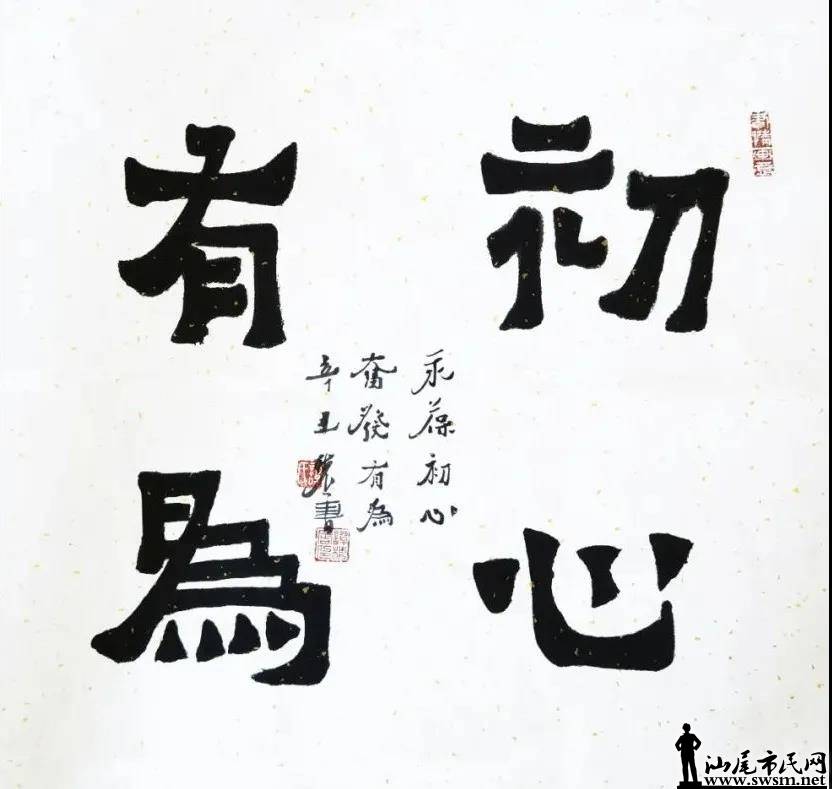 初心
有為
永葆初心
奮發有為
辛丑
書
汕尾市民网
www.swsm.net